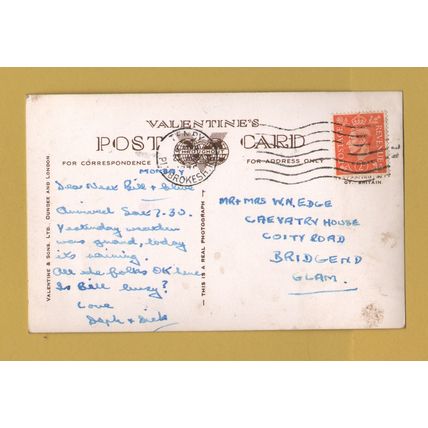 VALENTINE'S
POST CARD
FOR CORRESPONDENCE
FOR ADDRESS ONLY
MONDAY
Dear Bill &
Arrived Sat 7-30.
Yesterday weather
was grand, today
it's raining.
All the folks OK here
Is Bill busy?
Love
Daph & Dick
MR & MRS W.N. EDGE
CAEVATRY HOUSE
COITY ROAD
BRIDGEND
GLAM.
VALENTINE & SONS. LTD. DUNDEE AND LONDON.
— THIS IS A REAL PHOTOGRAPH —
TENBY
PEMBROKESHIRE
REVENUE
GT. BRITAIN